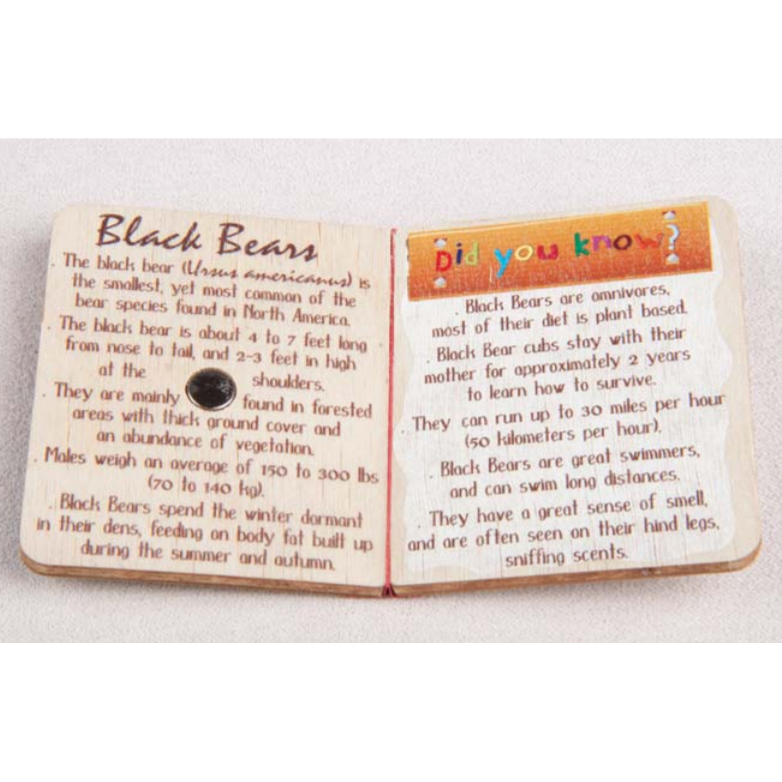 Black Bears
. The black bear (Ursus americanus) is
the smallest, yet most common of the
bear species found in North America.
. The black bear is about 4 to 7 feet long
from nose to tail, and 2-3 feet in high
at the shoulders.
. They are mainly found in forested
areas with thick ground cover and
an abundance of vegetation.
. Males weigh an average of 150 to 300 lbs
(70 to 140 kg).
. Black Bears spend the winter dormant
in their dens, feeding on body fat built up
during the summer and autumn.
Did you know?
. Black Bears are omnivores,
most of their diet is plant based.
. Black Bear cubs stay with their
mother for approximately 2 years
to learn how to survive.
. They can run up to 30 miles per hour
(50 kilometers per hour).
. Black Bears are great swimmers,
and can swim long distances.
. They have a great sense of smell,
and are often seen on their hind legs,
sniffing scents.